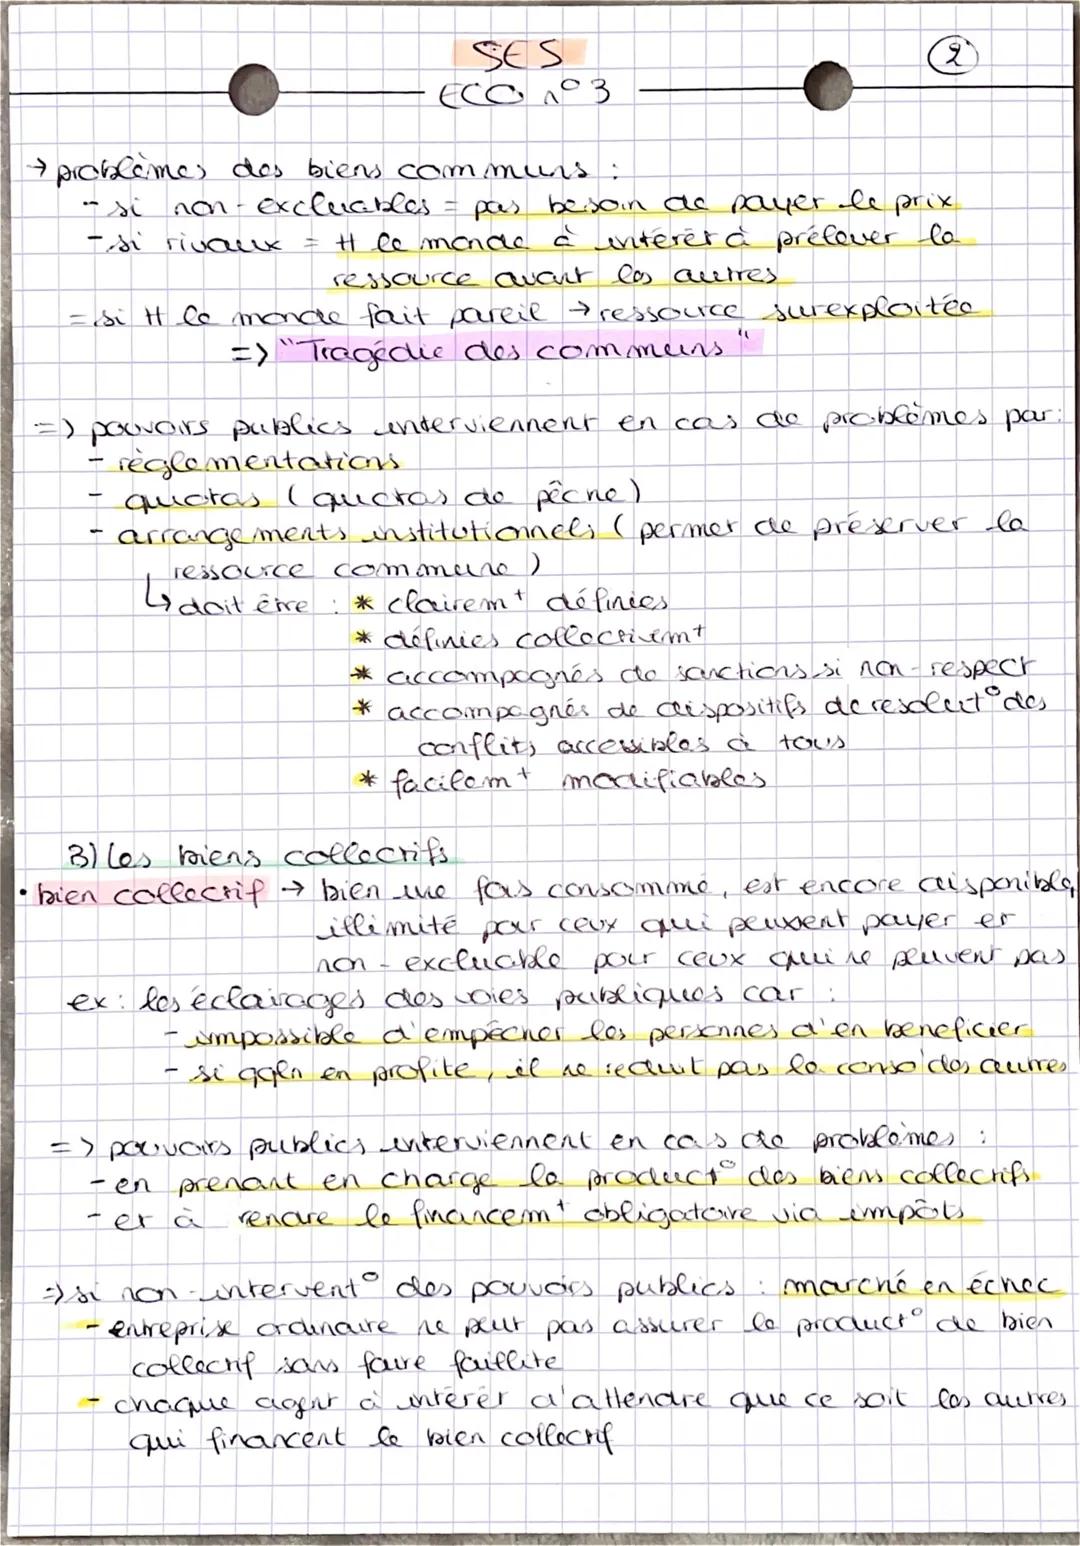 SES
2
ECO n°3
→ problèmes des biens communs :
- si non-excluables = pas besoin de payer le prix
- si rivaux = tt le monde à intérêt à prélever la
ressource avant les autres
= si tt le monde fait pareil → ressource surexploitée
=> "Tragédie des communs"
=> pouvoirs publics interviennent en cas de problèmes par :
- règlementations
- quotas (quotas de pêche)
- arrangements institutionnels (permet de préserver la
ressource commune)
↳ doit être : * clairemt définies
* définies collectivemt
* accompagnés de sanctions si non-respect
* accompagnés de dispositifs de resolut° des
conflits accessibles à tous
* facilemt modifiables
3) les biens collectifs
• bien collectif → bien une fois consommé, est encore disponible,
illimité pour ceux qui peuvent payer et
non-excluable pour ceux qui ne peuvent pas
ex : les éclairages des voies publiques car :
- impossible d'empêcher les personnes d'en beneficier
- si qqln en profite, il ne reduit pas la conso des autres
=> pouvoirs publics interviennent en cas de problèmes :
- en prenant en charge la product° des biens collectifs
- et à rendre le financemt obligatoire via impôts
=> si non-intervent° des pouvoirs publics : marché en échec
- entreprise ordinaire ne peut pas assurer la product° de bien
collectif sans faire faillite
- chaque agent à intérêt d'attendre que ce soit les autres
qui financent le bien collectif